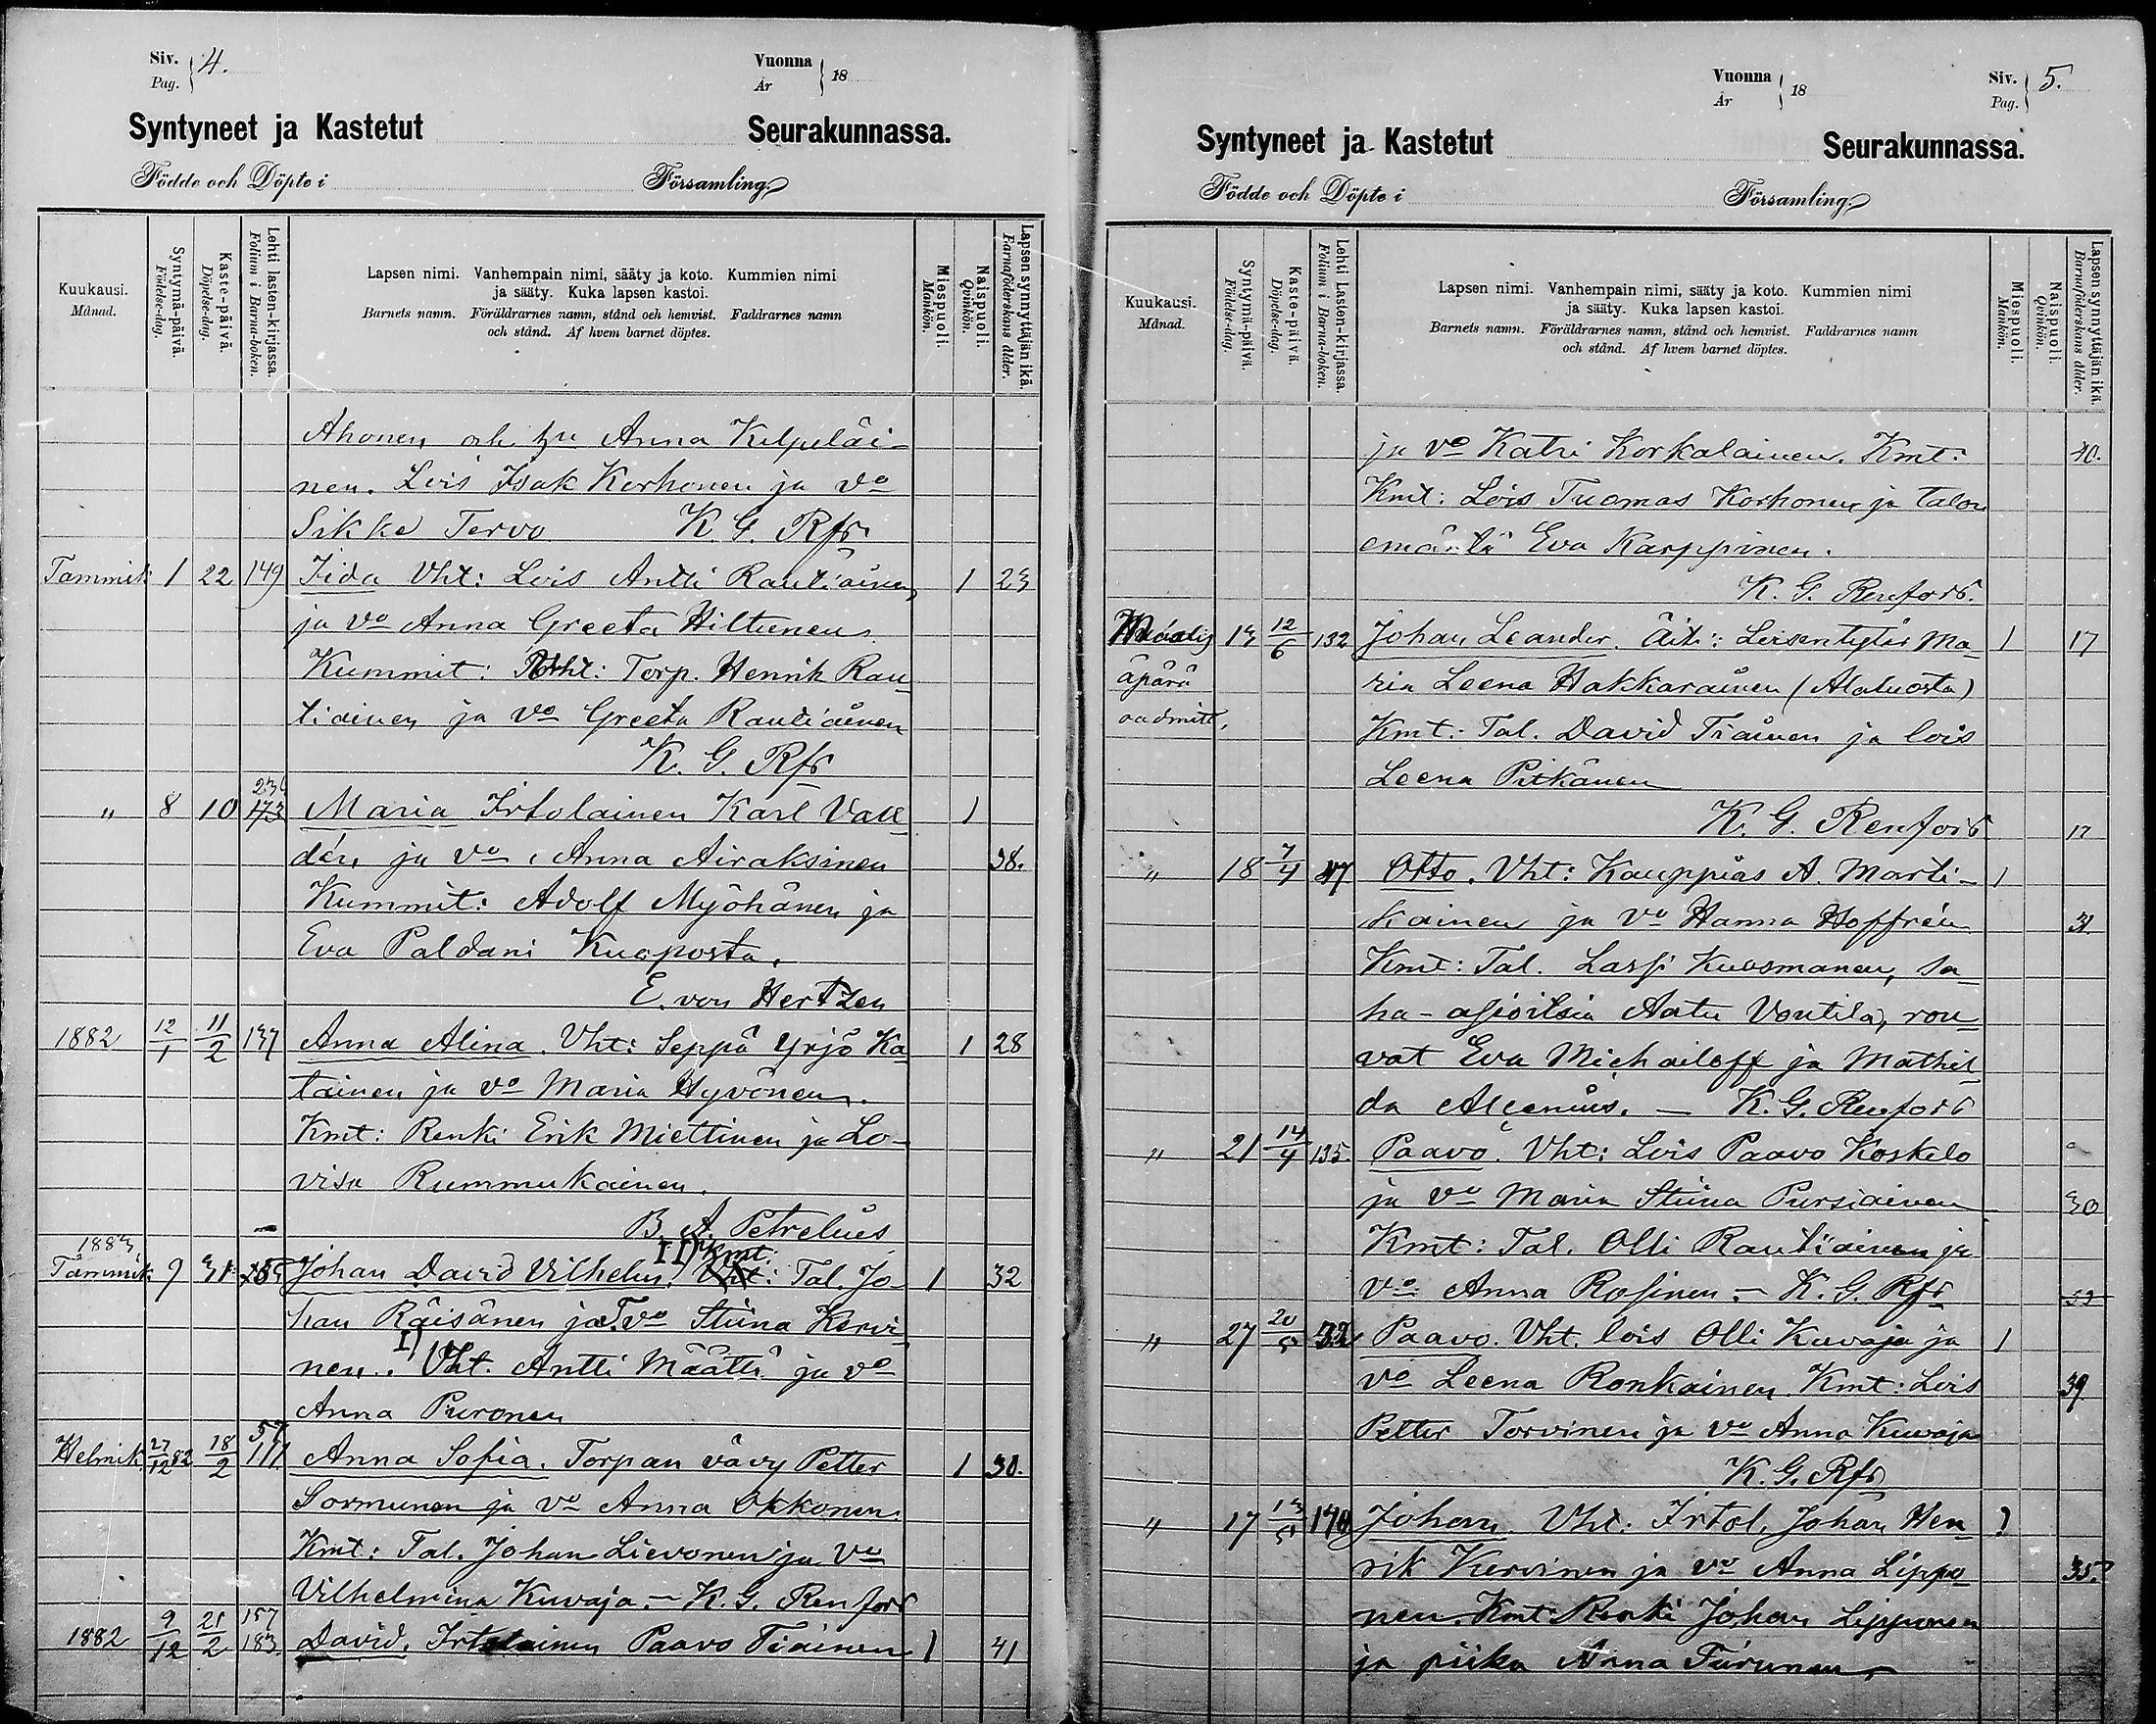 Siv. Pag. 4.
Vuonna År 18
Syntyneet ja Kastetut Seurakunnassa.
Födde och Döpte i Församling.
Kuukausi. Månad.
Syntymä-päivä. Födelse-dag.
Kaste-päivä. Döpelse-dag.
Lehti lasten-kirjassa. Folium i Barna-boken.
Lapsen nimi. Vanhempain nimi, sääty ja koto. Kummien nimi
ja sääty. Kuka lapsen kastoi.
Barnets namn. Föräldrarnes namn, stånd och hemvist. Faddrarnes namn
och stånd. Af hvem barnet döptes.
Miespuoli. Mankön.
Naispuoli. Qvinkön.
Lapsen synnyttäjän ikä. Barnaföderskans ålder.
Ahonen Anna Kilpeläi-
nen. Lois Isak Korhonen ja vo
Sikke Tervo K. G. Rfs
Tammik: 1 22 149 Iida Vht: Lois Antti Rautiainen 1 23
ja vo Anna Greeta Hiltunen
Kummit: Torp. Henrik Rau
tiainen ja vo Greeta Rautiainen
K. G. Rfs
" 8 10 173 Maria Irtolainen Karl Vall 1
dén ja vo Anna Airaksinen 38.
Kummit: Adolf Myöhänen ja
Eva Paldani Kuoposta.
E. von Hertzen
1882 12/1 11/2 137 Anna Alina. Vht: Seppä Yrjö Ka 1 28
tainen ja vo Maria Hyvönen.
Kmt: Renki Erik Miettinen ja Lo-
visa Rummukainen.
B. A. Petrelius
1883 II) Kmt:
Tammik: 9 31 Johan David Vilhelm. Vht: Tal. Jo 1 32
han Räisänen ja T. vo Stiina Kervi
I)
nen. Vht. Antti Määttä ja vo
Anna Puronen
57
Helmik. 27/12 82 18/2 111 Anna Sofia. Torpan vävy Petter 1 30.
Sormunen ja vo Anna Okkonen
Kmt: Tal. Johan Lievonen ja vo
Vilhelmina Kuvaja. — K. G. Renfors
157
1882 9/12 21/2 183. David. Irtolainen Paavo Tiainen 1 41
Vuonna År 18
Siv. Pag. 5.
Syntyneet ja Kastetut Seurakunnassa.
Födde och Döpte i Församling.
Kuukausi. Månad.
Syntymä-päivä. Födelse-dag.
Kaste-päivä. Döpelse-dag.
Lehti Lasten-kirjassa. Folium i Barna-boken.
Lapsen nimi. Vanhempain nimi, sääty ja koto. Kummien nimi
ja sääty. Kuka lapsen kastoi.
Barnets namn. Föräldrarnes namn, stånd och hemvist. Faddrarnes namn
och stånd. Af hvem barnet döptes.
Miespuoli. Mankön.
Naispuoli. Qvinkön.
Lapsen synnyttäjän ikä. Barnaföderskans ålder.
ja vo Katri Korkalainen. Kmt: 40.
Kmt: Lois Tuomas Korhonen ja talon
emäntä Eva Karppinen.
K. G. Renfors.
Maalisk 13 12/6 132 Johan Leander. Äiti: Loisentytär Ma 1 17
äpärä ria Leena Hakkarainen (Alaluosta)
Kmt: Tal. David Tiainen ja lois
Leena Pitkänen
K. G. Renfors 17
" 18 7/4 Otto. Vht: Kauppias A. Marti- 1
kainen ja vo Hanna Hoffrén 31.
Kmt: Tal. Lassi Kuosmanen, sa
ha-asioitsia Aatu Voutila, rou
vat Eva Michailoff ja Mathil
da Alcenius. — K. G. Renfors
" 21 14/4 135. Paavo. Vht: Lois Paavo Koskelo
ja vo Maria Stiina Pursiainen 30
Kmt: Tal. Olli Rautiainen ja
vo Anna Rosinen. — K. G. Rfs
" 27 20/5 32 Paavo. Vht. lois Olli Kuvaja ja 1
vo Leena Ronkainen. Kmt: Lois 39
Petter Torvinen ja vo Anna Kuvaja
K. G. Rfs
" 17 13/5 Johan. Vht: Irtol. Johan Hen 1
rik Kervinen ja vo Anna Lippo 35.
nen. Kmt Renki Johan Lipponen
ja piika Anna Turunen